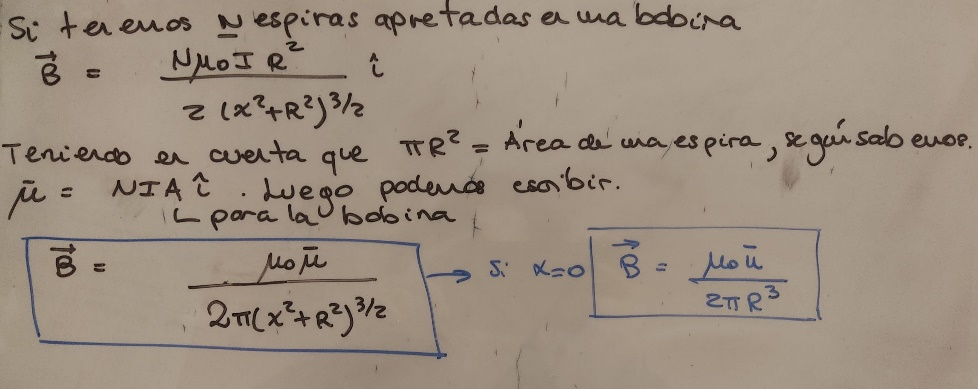 Si tenemos N espiras apretadas en una bobina
B⃗ = Nμ₀IR² / 2(x²+R²)^3/2 î
Teniendo en cuenta que πR² = Área de una espira, según sabemos.
μ̄ = NIA î. Luego podemos escribir.
↳ para la bobina
B⃗ = μ₀μ̄ / 2π(x²+R²)^3/2 → Si x=0 B⃗ = μ₀μ̄ / 2πR³